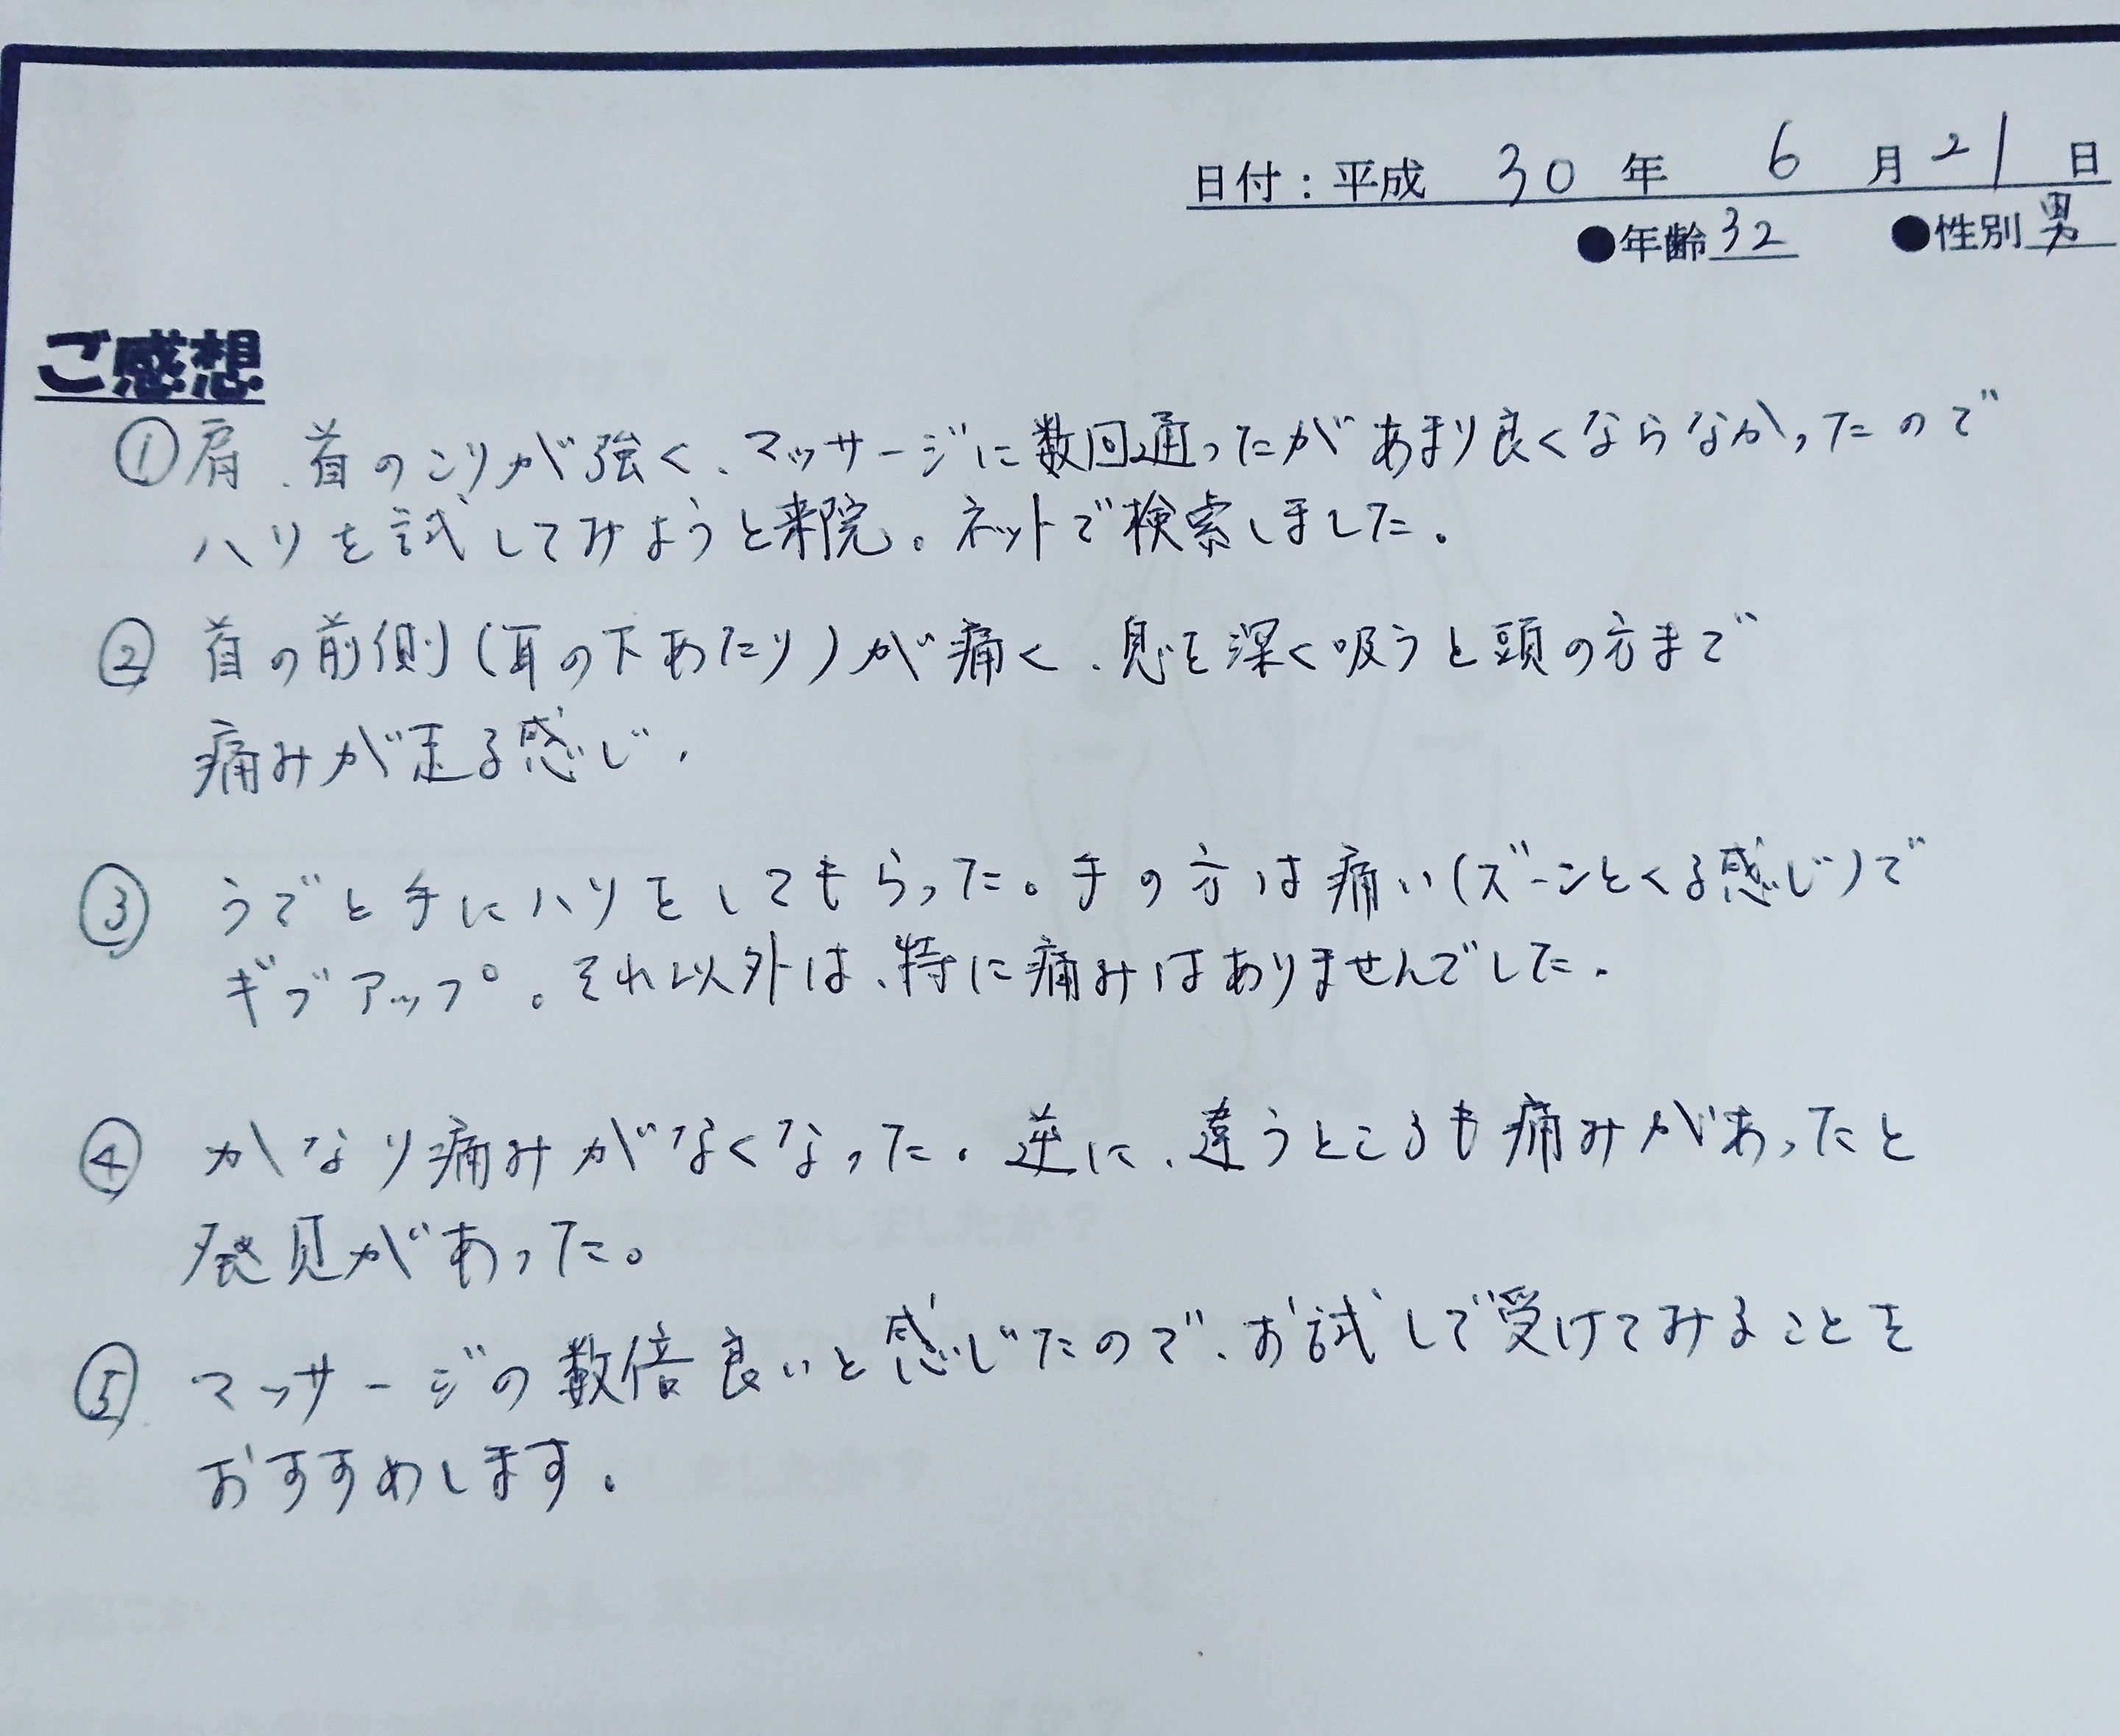 日付：平成 30 年 6 月 21 日
●年齢 32 ●性別 男
ご感想
①肩、首のこりが強く、マッサージに数回通ったがあまり良くならなかったので
ハリを試してみようと来院。ネットで検索しました。
② 首の前側（耳の下あたり）が痛く、息を深く吸うと頭の方まで
痛みが走る感じ。
③ うでと手にハリをしてもらった。手の方は痛い（ズーンとくる感じ）で
ギブアップ。それ以外は、特に痛みはありませんでした。
④ かなり痛みがなくなった。逆に、違うところも痛みがあったと
発見があった。
⑤ マッサージの数倍良いと感じたので、お試しで受けてみることを
おすすめします。